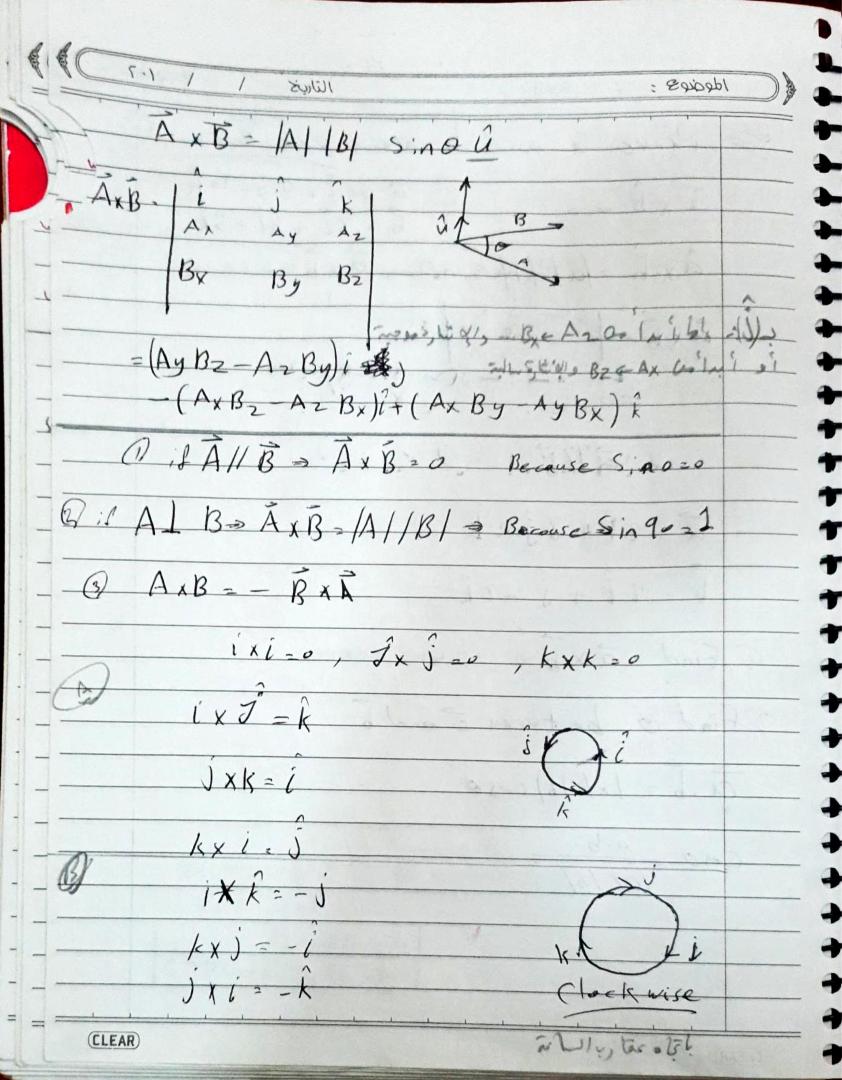 الموضوع : التاريخ / / ٢٠١
A⃗ × B⃗ = |A| |B| Sin θ û
A⃗×B⃗ = | î ĵ k̂
Ax Ay Az
Bx By Bz |
û B θ A
= (Ay Bz − Az By) i j
−(Ax Bz − Az Bx) î + (Ax By − Ay Bx) k̂
① if A⃗ // B⃗ ⇒ A⃗ × B⃗ = 0 Because Sin 0 = 0
② if A ⊥ B ⇒ A⃗ × B⃗ = |A| |B| ⇒ Because Sin 90 = 1
③ A × B = − B⃗ × A⃗
i × i = 0 , ĵ × ĵ = 0 , k × k = 0
A
i × ĵ = k̂
j × k = î
k × i = ĵ
ĵ î k̂
B
i × k̂ = − j
k × j = − î
j × i = − k̂
j k i
Clockwise
CLEAR
باتجاه عقارب الساعة